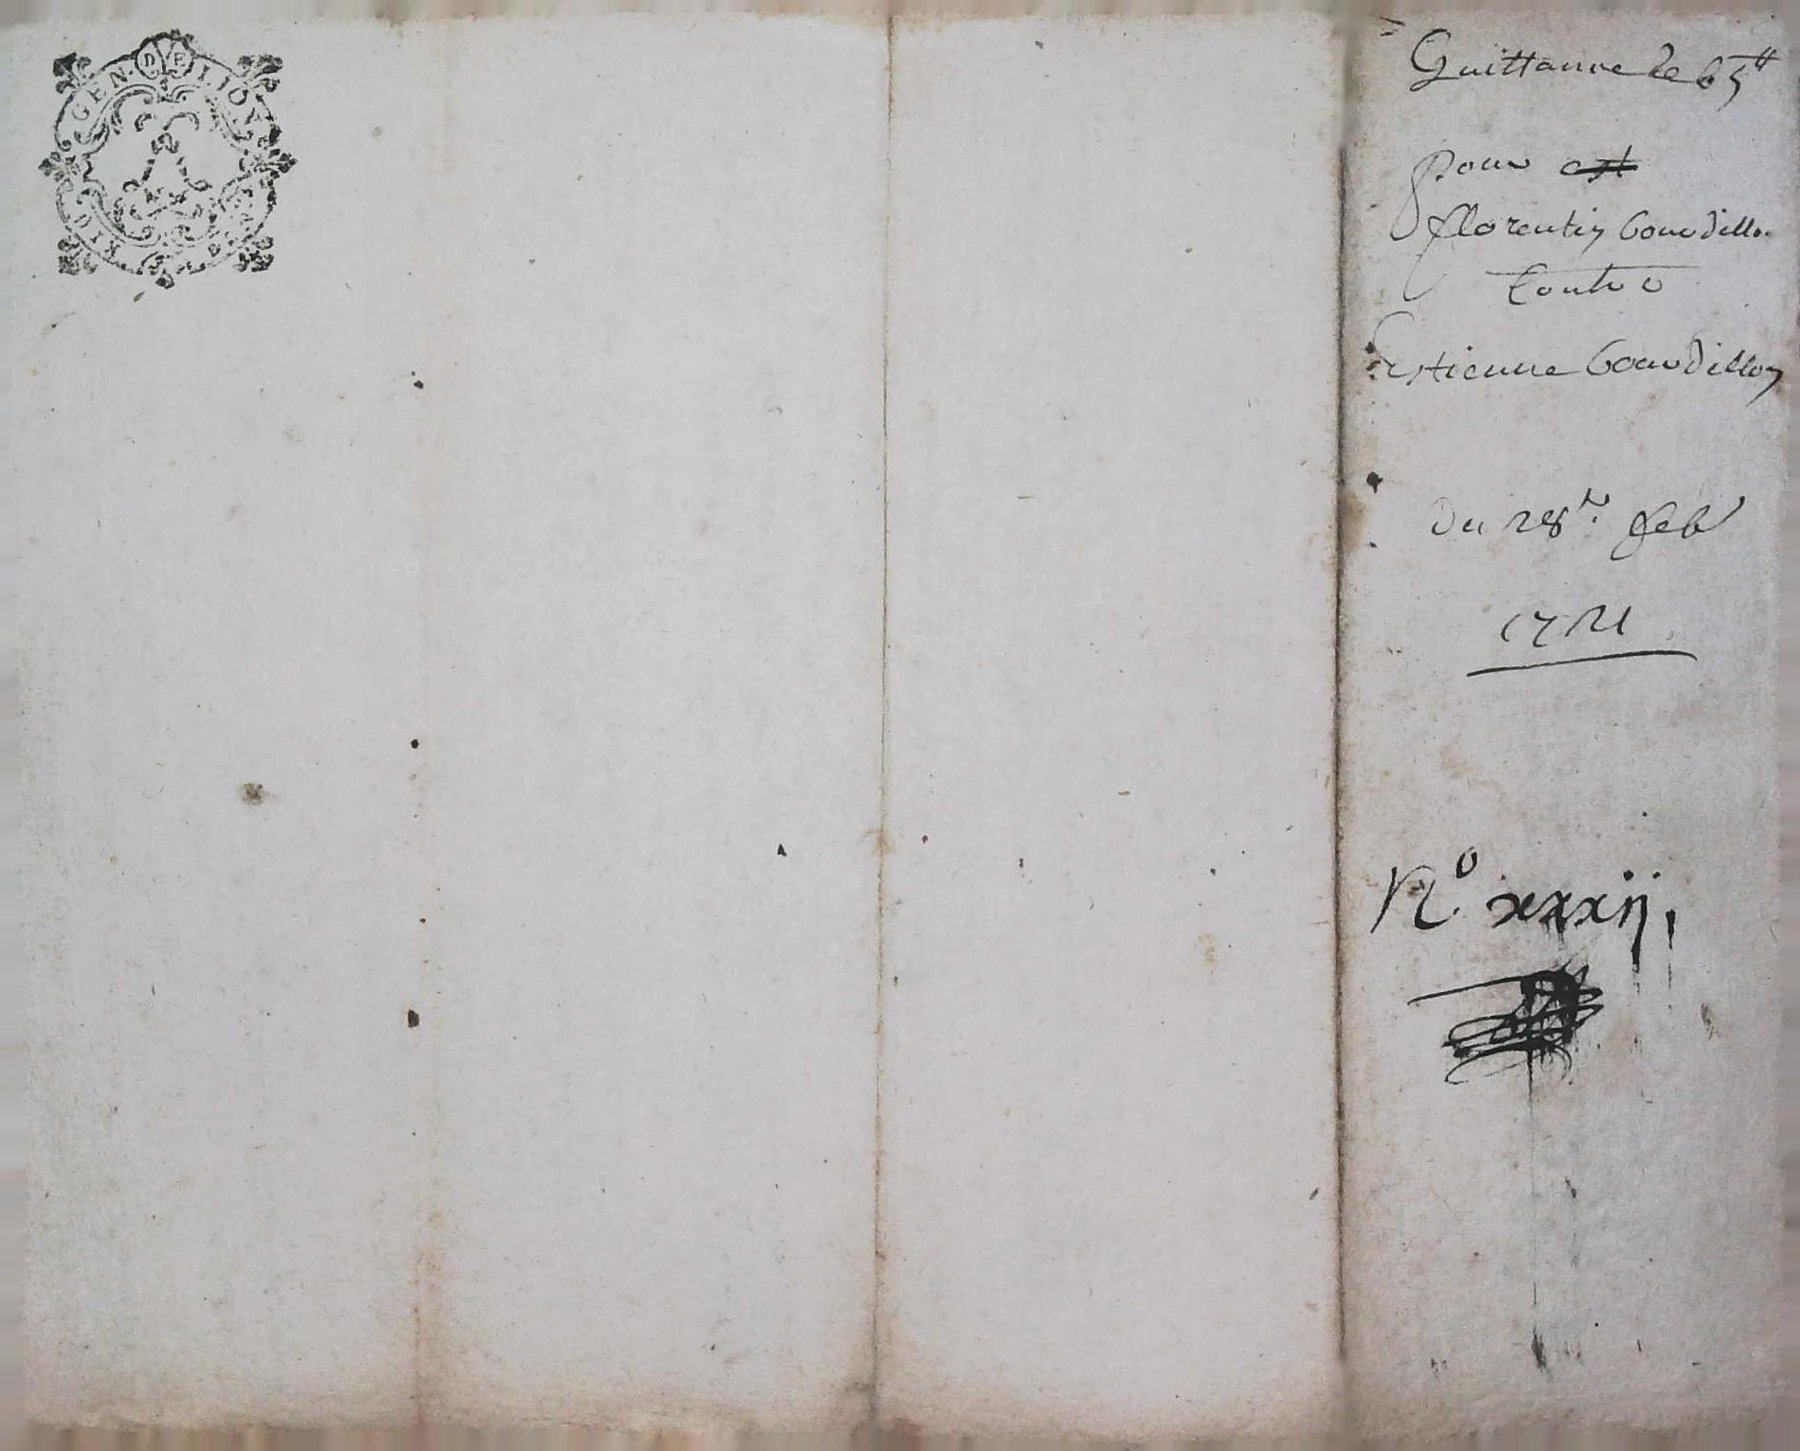 GEN. DE LION
Quittance de 65 ₶
pour est
florentin bourdillon
Contre
Estienne bourdillon
Du 28e. feb
1721
N.o xxxij.